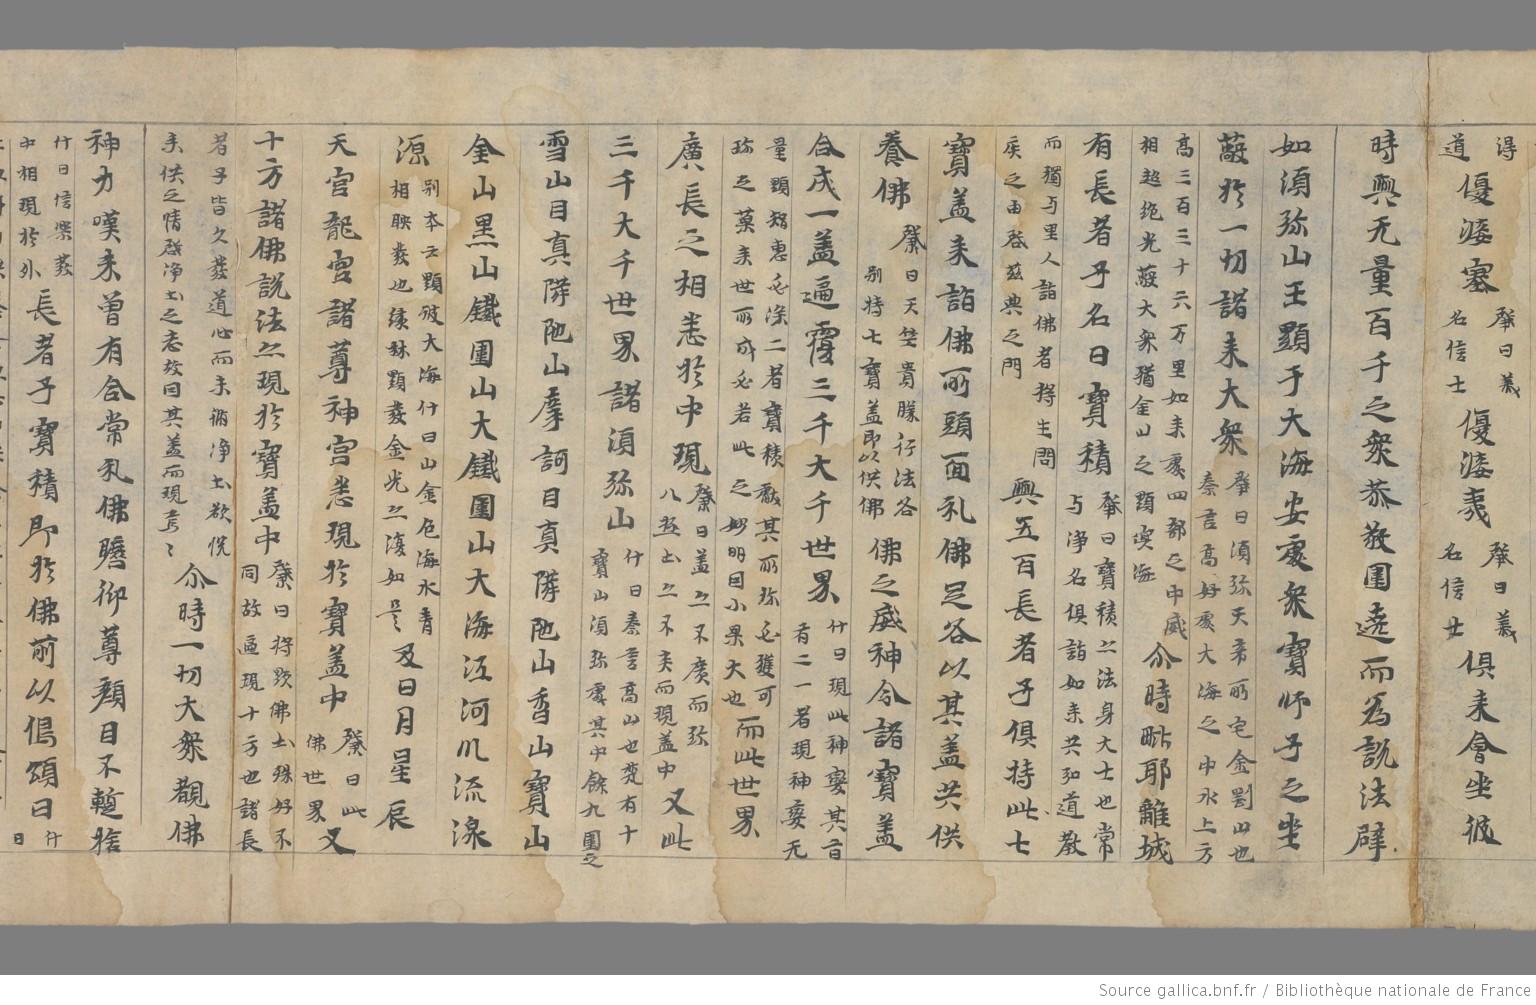 得道優婆塞肇曰義名信士優婆夷肇曰義名信女俱来會坐彼
時與无量百千之衆恭敬圍遶而為說法辟
如須弥山王顯于大海安處衆寶師子之坐
蔽於一切諸来大衆肇曰須弥天帝所宅金剛山也秦言髙好處大海之中水上方
髙三百三十六万里如来處四部之中威相超絶光蔽大衆猶金山之顯溟海尒時毗耶離城
有長者子名曰寶積肇曰寶積亦法身大士也常与淨名俱詣如来共弘道教
而獨与里人詣佛者将生問疾之由啓兹典之門與五百長者子俱持此七
寶盖来詣佛所頭面礼佛足各以其盖共供
養佛肇曰天竺貴勝行法各别持七寶盖即以供佛佛之威神令諸寶盖
合成一盖遍覆三千大千世界什曰現此神變其旨有二一者現神變无
量顯智惠必深二者寶積獻其所弥必獲可弥之菓来世所成必若此之妙明因小果大也而此世界
廣長之相悉於中現肇曰盖亦不廣而弥八極土亦不夾而現盖中又此
三千大千世界諸須弥山什曰秦言髙山也梵有十寶山須弥處其中餘九圍之
雪山目真隣陁山摩訶目真隣陁山香山寶山
金山黑山鐵圍山大鐵圍山大海江河川流湶
源别本云顯彼大海什曰山金色海水青相映發也緑秫顯發金光亦復如是及日月星辰
天宫龍宫諸尊神宫悉現於寶盖中肇曰此佛世界又
十方諸佛說法亦現於寶盖中肇曰将顯佛土殊好不同故遍現十方也諸長
者子皆久發道心而未脩淨土欲恱来供之情啓淨土之志故因其盖而現言之尒時一切大衆覩佛
神力嘆未曾有合掌礼佛瞻仰尊顏目不蹔捨
什曰信樂發中相現於外長者子寶積即於佛前以偈頌曰什曰
Source gallica.bnf.fr / Bibliothèque nationale de France